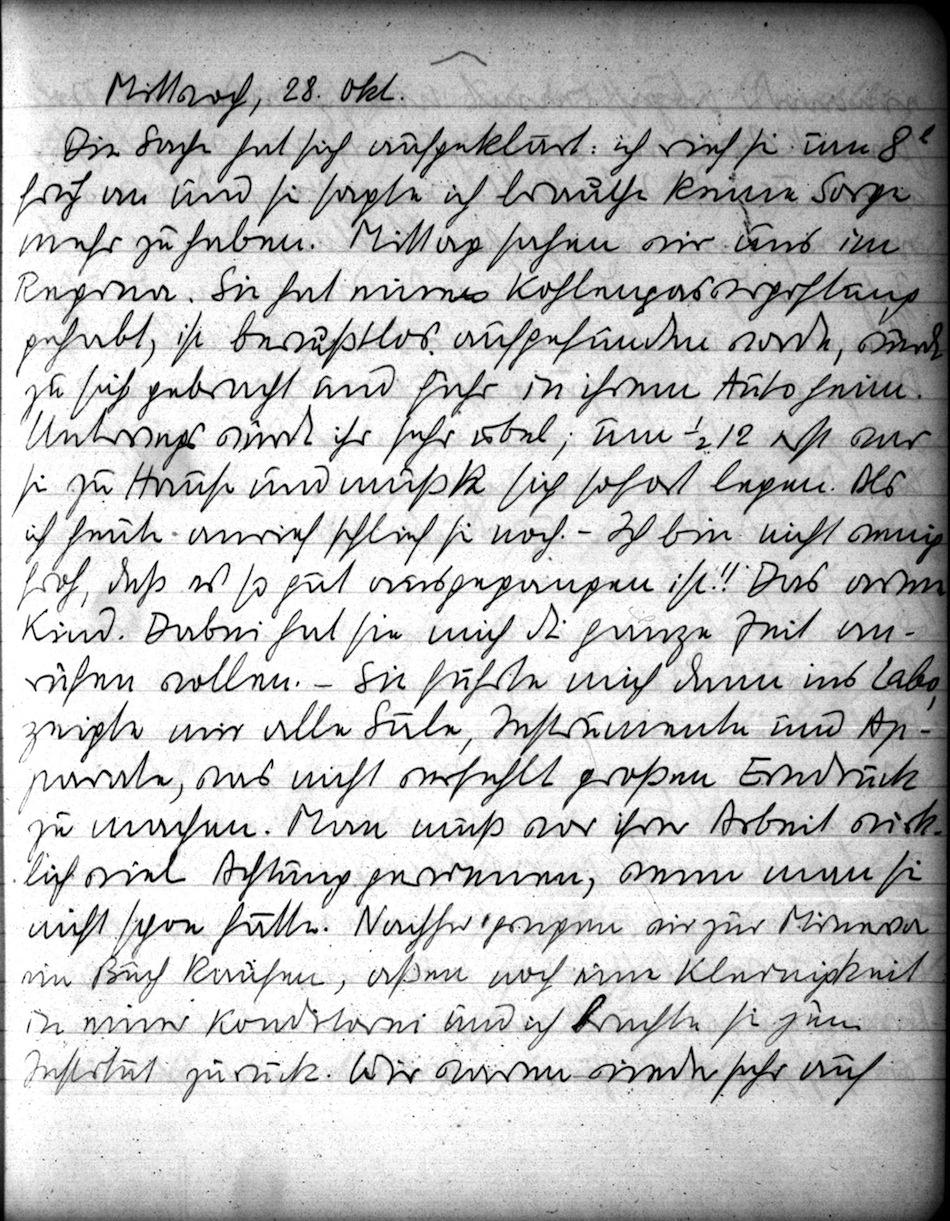 Mittwoch, 28. Okt.
Die Sache hat sich aufgeklärt: ich rief sie um 8
früh an und sie sagte ich brauche keine Sorge
mehr zu haben. Mittag sahen wir uns im
Regina. Sie hat eine Kohlengasvergiftung
gehabt, ist bewußtlos aufgefunden worden, wurde
zu sich gebracht und fuhr in ihrem Auto heim.
Unterwegs wurde ihr sehr übel; um ½ 12 erst war
sie zu Hause und mußte sich sofort legen. Als
ich heute anrief schlief sie noch. – Ich bin nicht wenig
froh, daß es so gut ausgegangen ist!! Das arme
Kind. Dabei hat sie mich die ganze Zeit an-
rufen wollen. – Sie führte mich dann ins Labo,
zeigte mir alle Säle, Instrumente und Ap-
parate, was nicht verfehlt großen Eindruck
zu machen. Man muß vor ihrer Arbeit wirk-
lich viel Achtung gewinnen, wenn man sie
nicht schon hätte. Nachher gingen wir zur Minerva
ein Buch kaufen, aßen noch eine Kleinigkeit
in einer Konditorei und ich brachte sie zum
Institut zurück. Wir waren wieder sehr auf